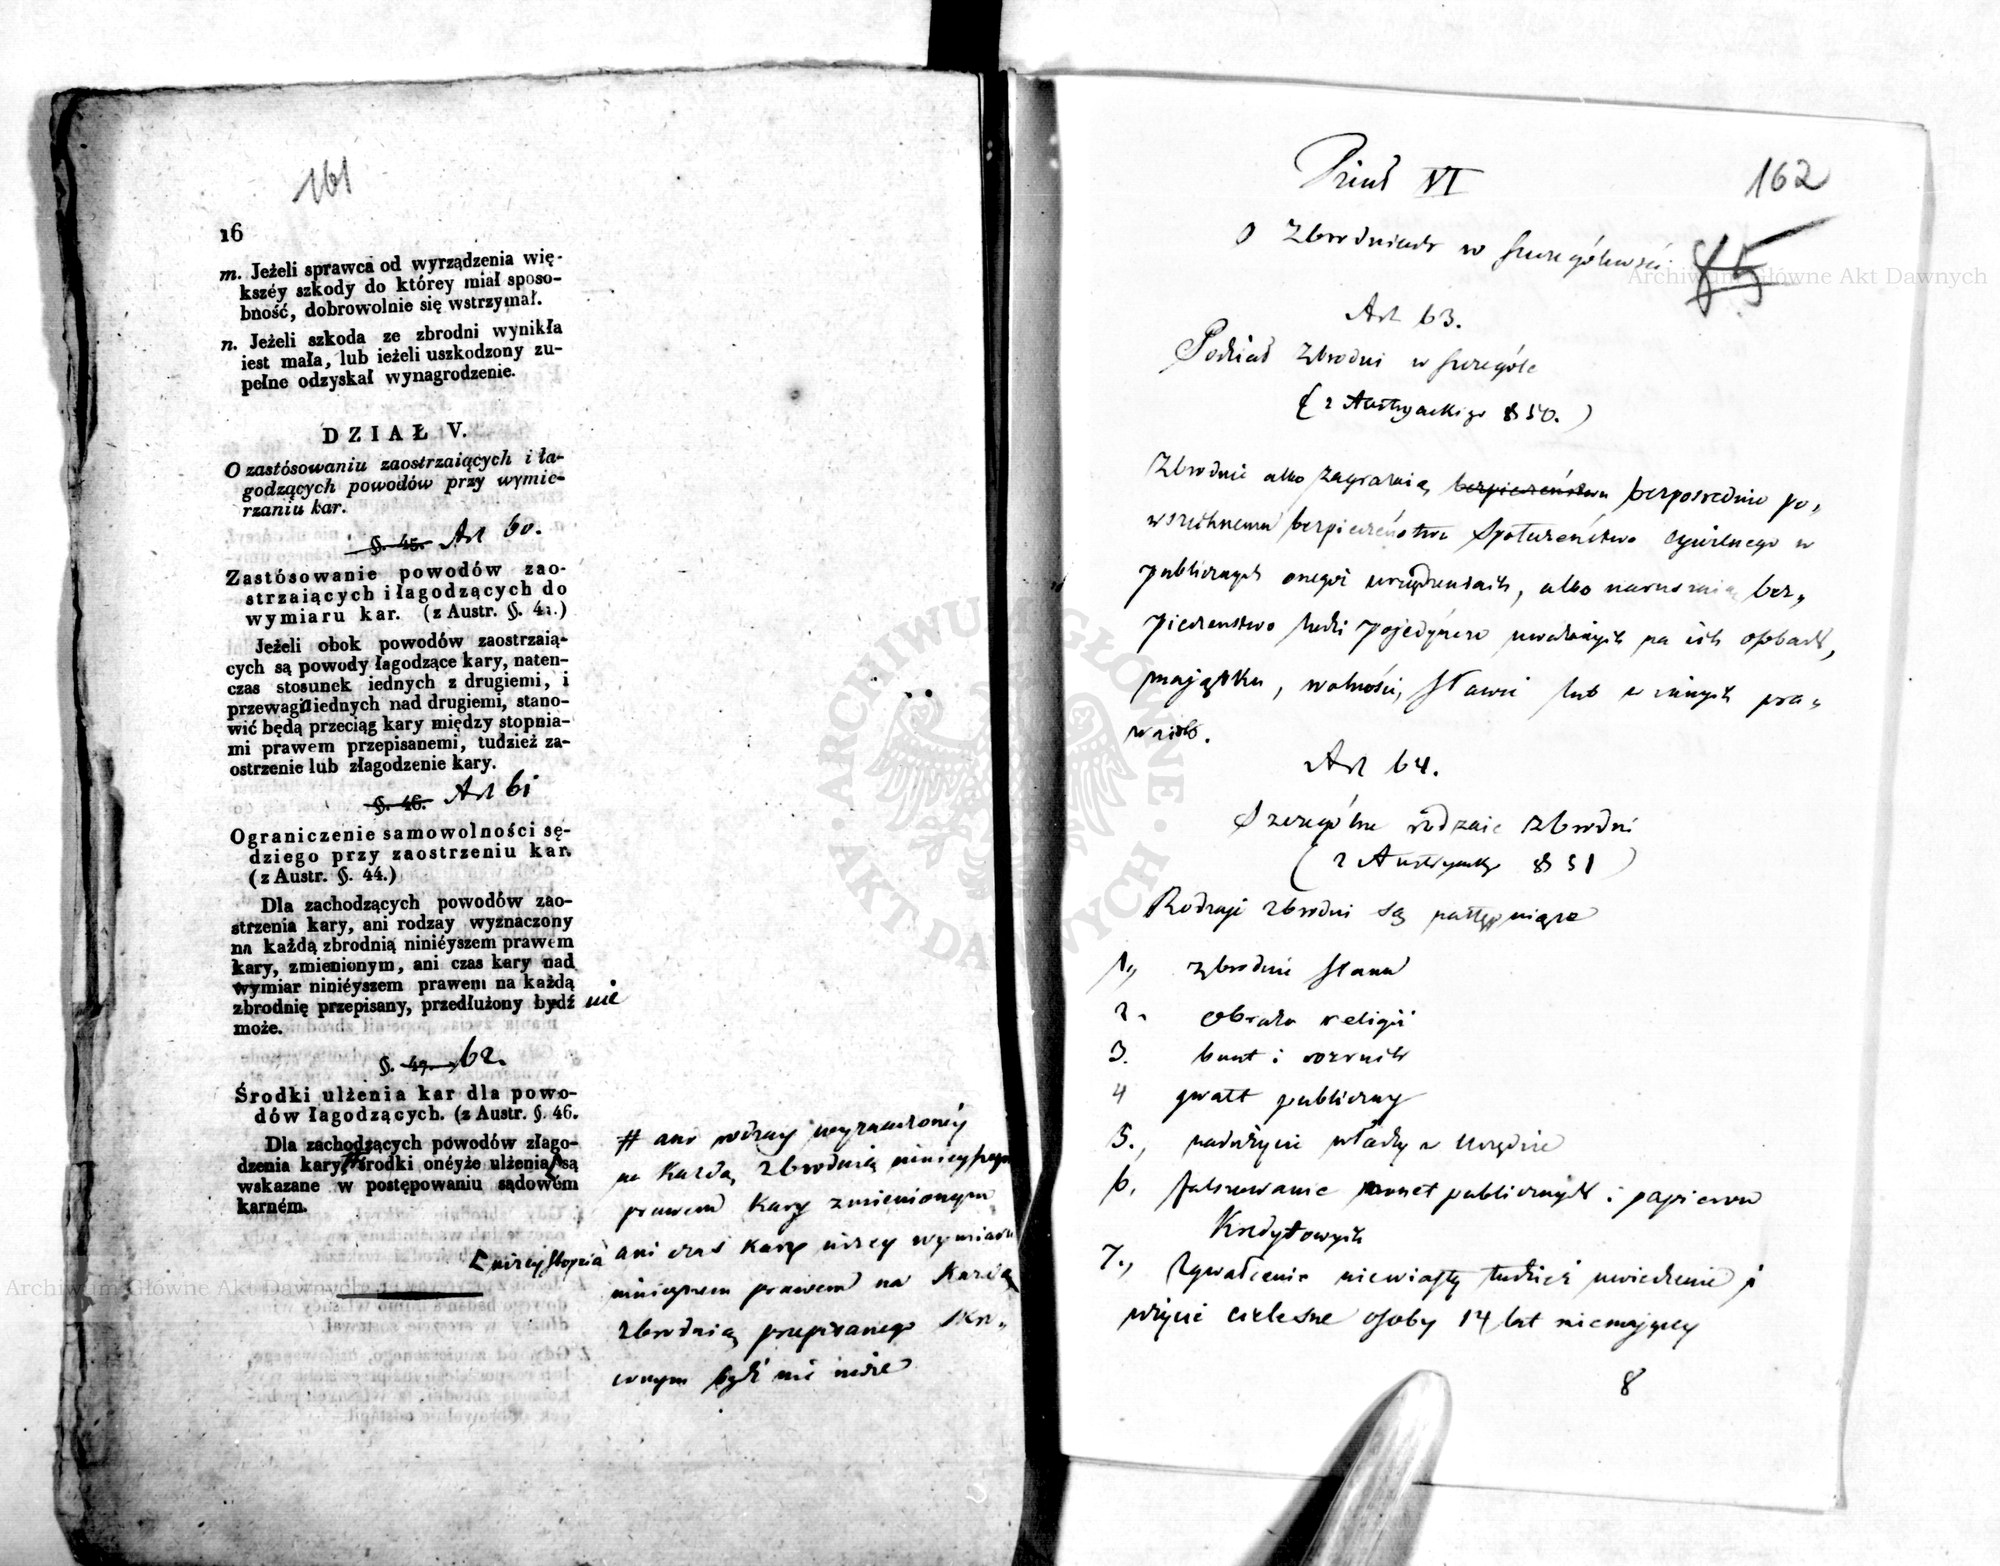 161
16
m. Jeżeli sprawca od wyrządzenia wię-
kszéy szkody do którey miał sposo-
bność, dobrowolnie się wstrzymał.
n. Jeżeli szkoda ze zbrodni wynikła
iest mała, lub ieżeli uszkodzony zu-
pełne odzyskał wynagrodzenie.
DZIAŁ V.
O zastósowaniu zaostrzaiących i ła-
godzących powodów przy wymie-
rzaniu kar.
§. 45. Art 60.
Zastósowanie powodów zao-
strzaiących i łagodzących do
wymiaru kar. (z Austr. §. 43.)
Jeżeli obok powodów zaostrzaią-
cych są powody łagodzące kary, naten-
czas stosunek iednych z drugiemi, i
przewaga iednych nad drugiemi, stano-
wić będą przeciąg kary między stopnia-
mi prawem przepisanemi, tudzież za-
ostrzenie lub złagodzenie kary.
§. 46. Art 61
Ograniczenie samowolności sę-
dziego przy zaostrzeniu kar.
(z Austr. §. 44.)
Dla zachodzących powodów zao-
strzenia kary, ani rodzay wyznaczony
na każdą zbrodnią niniéyszem prawem
kary, zmienionym, ani czas kary nad
wymiar niniéyszem prawem na każdą
zbrodnię przepisany, przedłużony bydź nie
może.
§. 47. 62.
Środki ulżenia kar dla powo-
dów łagodzących. (z Austr. §. 46.
Dla zachodzących powodów złago-
dzenia kary, # środki onéyże ulżenia są
wskazane w postępowaniu sądowém
karném.
# ani rodzay wyznaczoney
na każdą zbrodnią ninieyszym
prawem kary zmienionym
ani czas kary niżey wymiaru
niniejszem prawem na każdą
zbrodnią przepisanego skró-
conym bydź nie może
niżey stopnia
162
85
Dział VI
O Zbrodniach w szczególności
Art 63.
Podział Zbrodni w szczególe
(z Austryackiego § 50.)
Zbrodnie albo zagrażaią bezpieczeństwu bezposrednio po-
wszechnemu bezpieczeństwu Społeczeństwa cywilnego w
publicznych onegoż urządzeniach, albo naruszaią bez-
pieczenstwo ludzi pojedynczo uważanych na ich osobach,
majątku, wolności, sławie lub w innych pra-
wach.
Art 64.
Szczególne rodzaie zbrodni
(z Austryack § 51)
Rodzaje zbrodni są następuiące
1., zbrodnie stanu
2. obraza religii
3. bunt i rozruch
4 gwałt publiczny
5., nadużycie władzy w urzędzie
6. fałszowanie monet publicznych i papierow
Kredytowych
7., zgwałcenie niewiasty tudzież uwiedzenie i
użycie cielesne osoby 14 lat niemaiącey
8
Archiwum Główne Akt Dawnych
Archiwum Główne Akt Dawnych
ARCHIWUM GŁÓWNE
AKT DAWNYCH